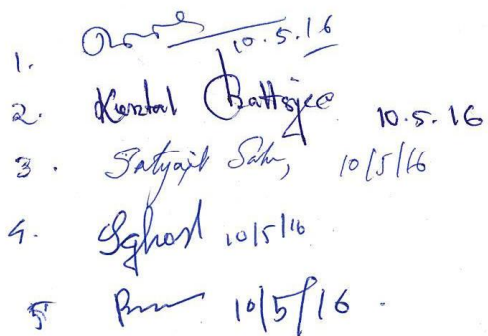 1. 10.5.16
2. Kuntal Chatterjee 10.5.16
3. Satyajit Saha, 10/5/16
4. SGhosh 10/5/16
5 10/5/16.